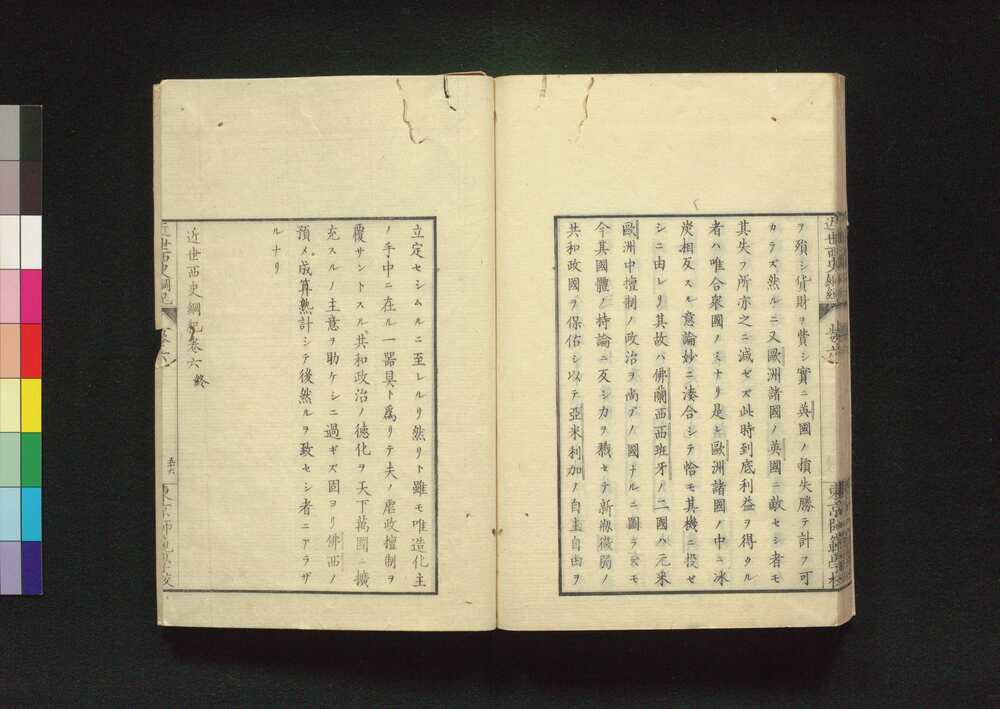 近世西史綱紀
卷六
東京師範學校
ヲ殞シ貨財ヲ費シ實ニ英國ノ損失勝テ計フ可
カラズ然ルニ又歐洲諸國ノ英國ニ敵セシ者モ
其失フ所亦之ニ減ゼズ此時到底利益ヲ得タル
者ハ唯合衆國ノミナリ是レ歐洲諸國ノ中ニ冰
炭相反スル意論妙ニ湊合シテ恰モ其機ニ投ゼ
シニ由レリ其故ハ佛蘭西西班牙ノ二國ハ元来
歐洲中擅制ノ政治ヲ尚ブノ國ナルニ圖ラズモ
今其國體ノ持論ニ反シカヲ戮セテ新製微弱ノ
共和政國ヲ保佑シ以テ亞米利加ノ自主自由ヲ
立定セシムルニ至レルリ然リト雖モ唯造化主
ノ手中ニ在ル一器具ト爲リテ夫ノ虐政擅制ヲ
覆サントスル共和政治ノ德化ヲ天下萬國ニ擴
充スルノ主意ヲ助ケシニ過ギズ固ヨリ佛西ノ
預メ成算熟計シテ後然ルヲ致セシ者ニアラザ
ルナリ
近世西史綱紀卷六終
近世西史綱紀
卷六
五六
東京師範學校